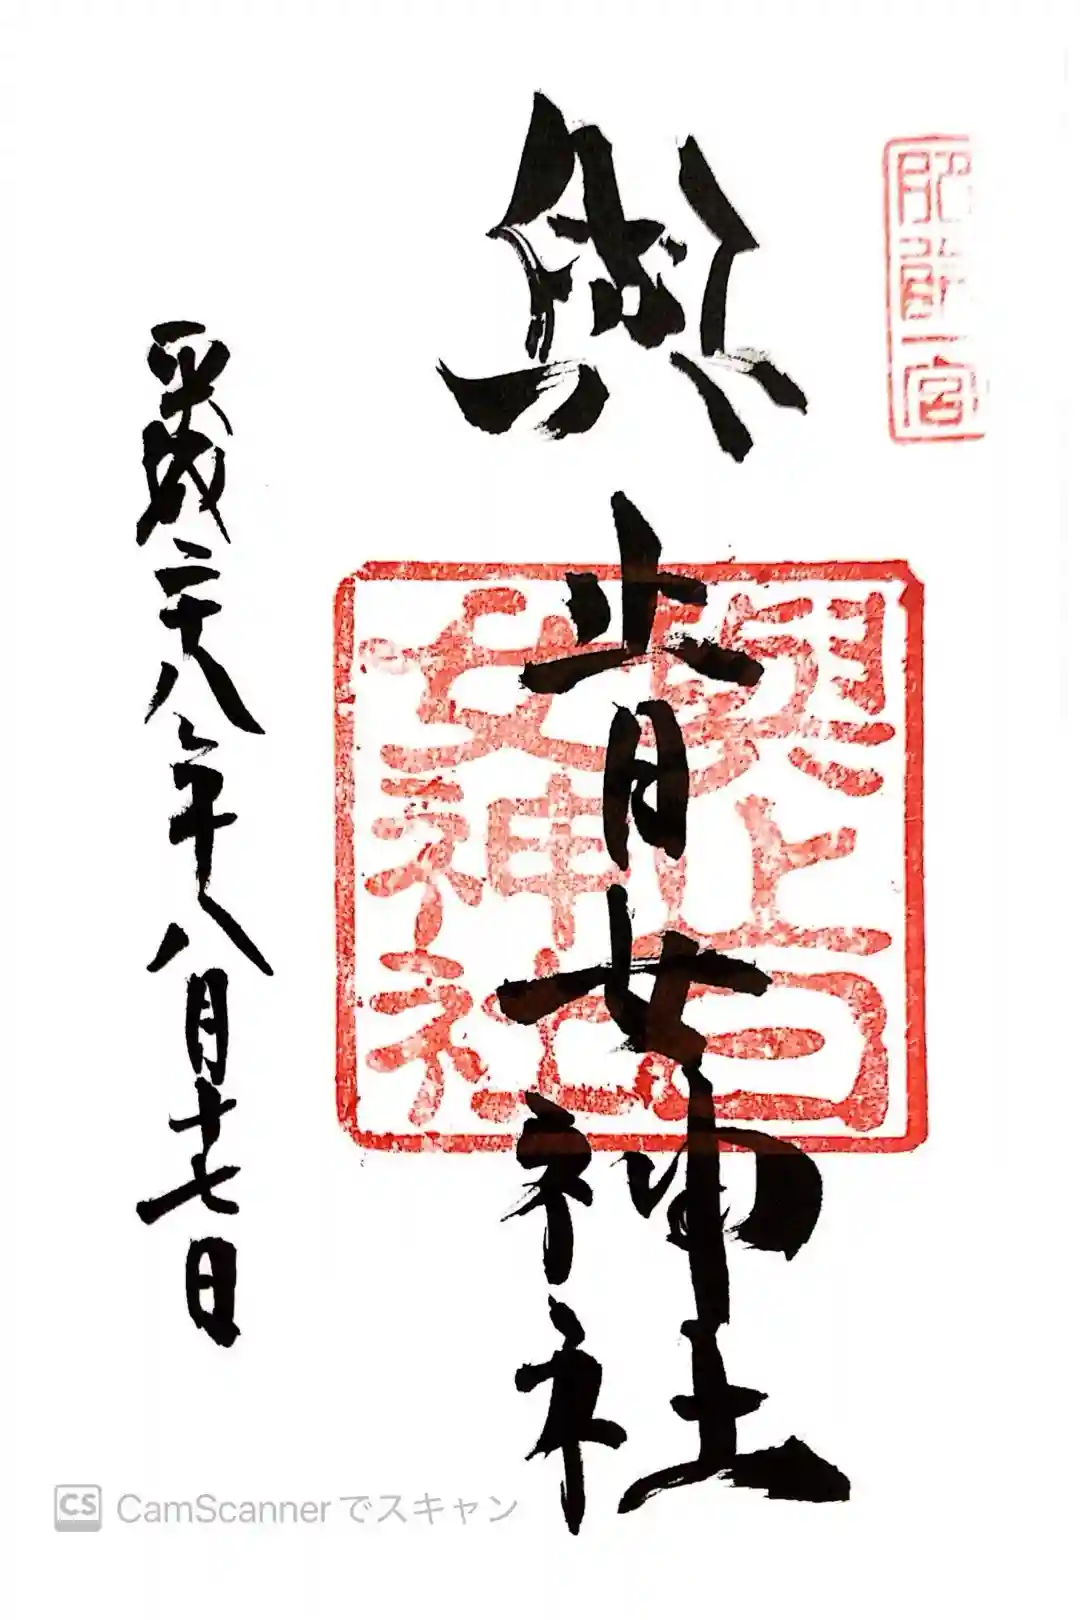 肥前一宮
與止日女神社
與止日女神社
平成二十八年八月十七日
CS CamScannerでスキャン